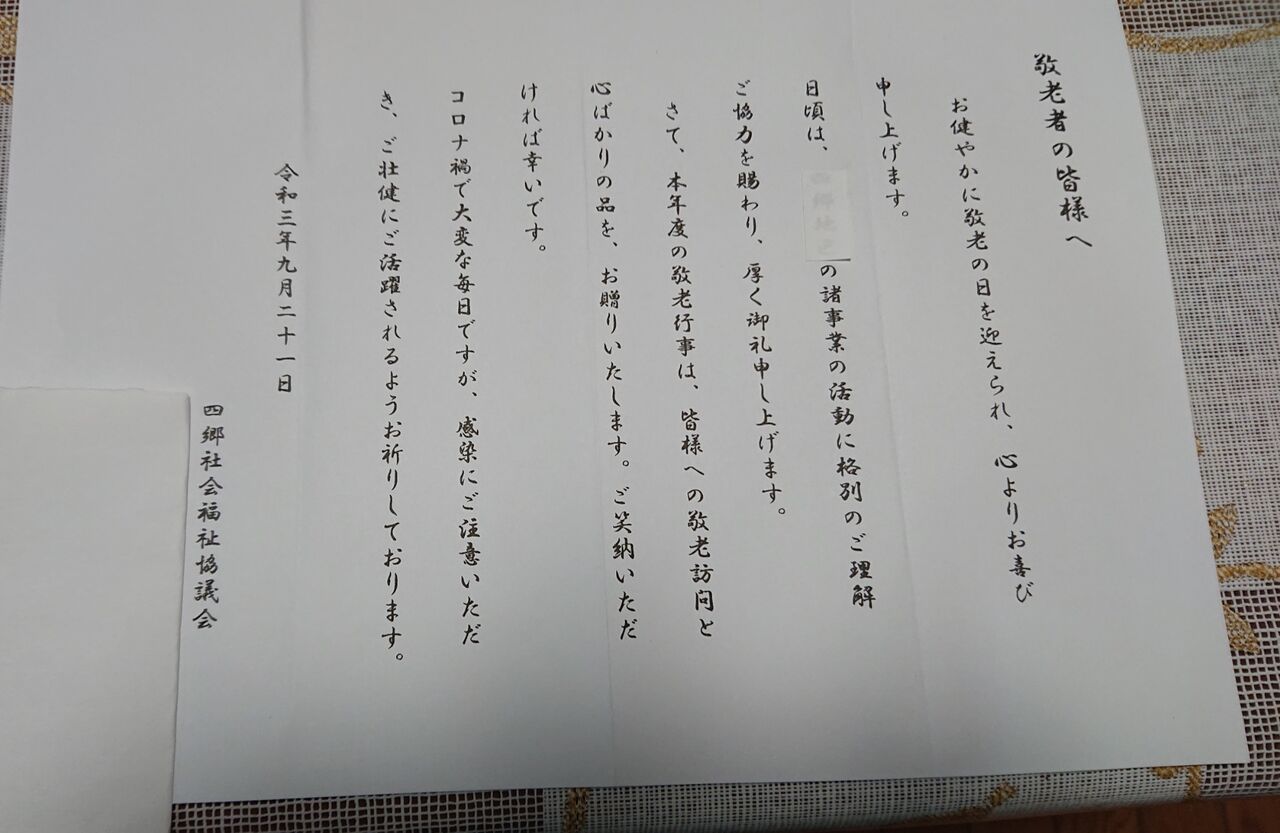 敬老者の皆様へ
お健やかに敬老の日を迎えられ、心よりお喜び
申し上げます。
日頃は、四郷地区の諸事業の活動に格別のご理解
ご協力を賜わり、厚く御礼申し上げます。
さて、本年度の敬老行事は、皆様への敬老訪問と
心ばかりの品を、お贈りいたします。ご笑納いただ
ければ幸いです。
コロナ禍で大変な毎日ですが、感染にご注意いただ
き、ご壮健にご活躍されるようお祈りしております。
令和三年九月二十一日
四郷社会福祉協議会